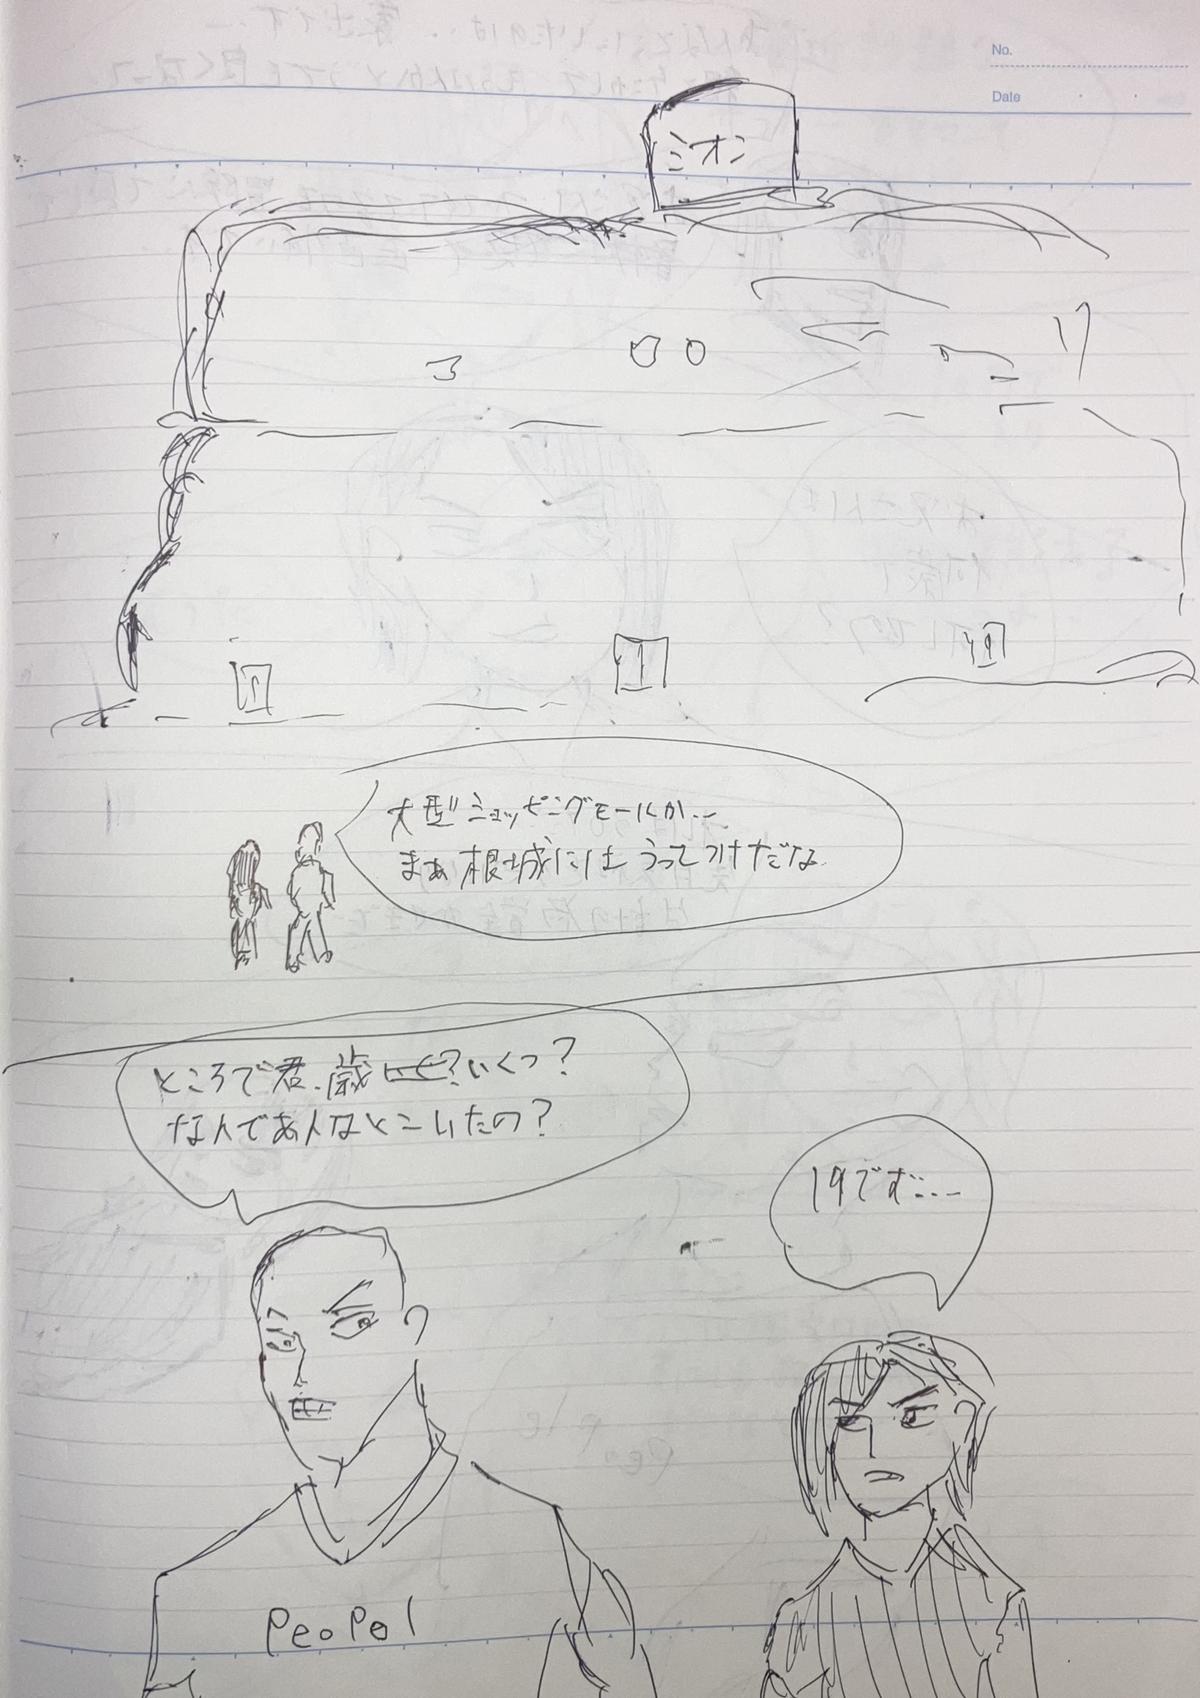 No.
Date
ミオン
大型ショッピングモールか…
まぁ根城にはうってつけだな
ところで君、歳いくつ?
なんであんなとこいたの?
19です…
PeoPol